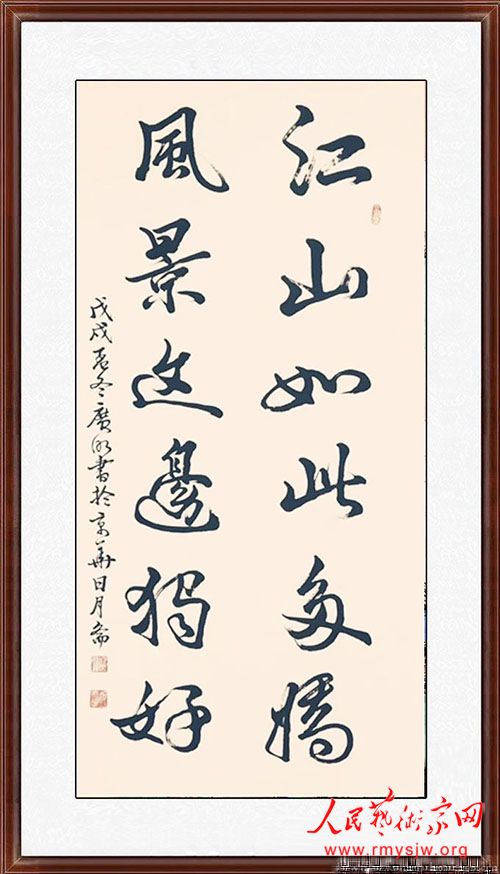 江山如此多嬌
風景这邊獨好
戊戌冬廣書於京華日月齋
人民藝術家网
www.rmysjw.org